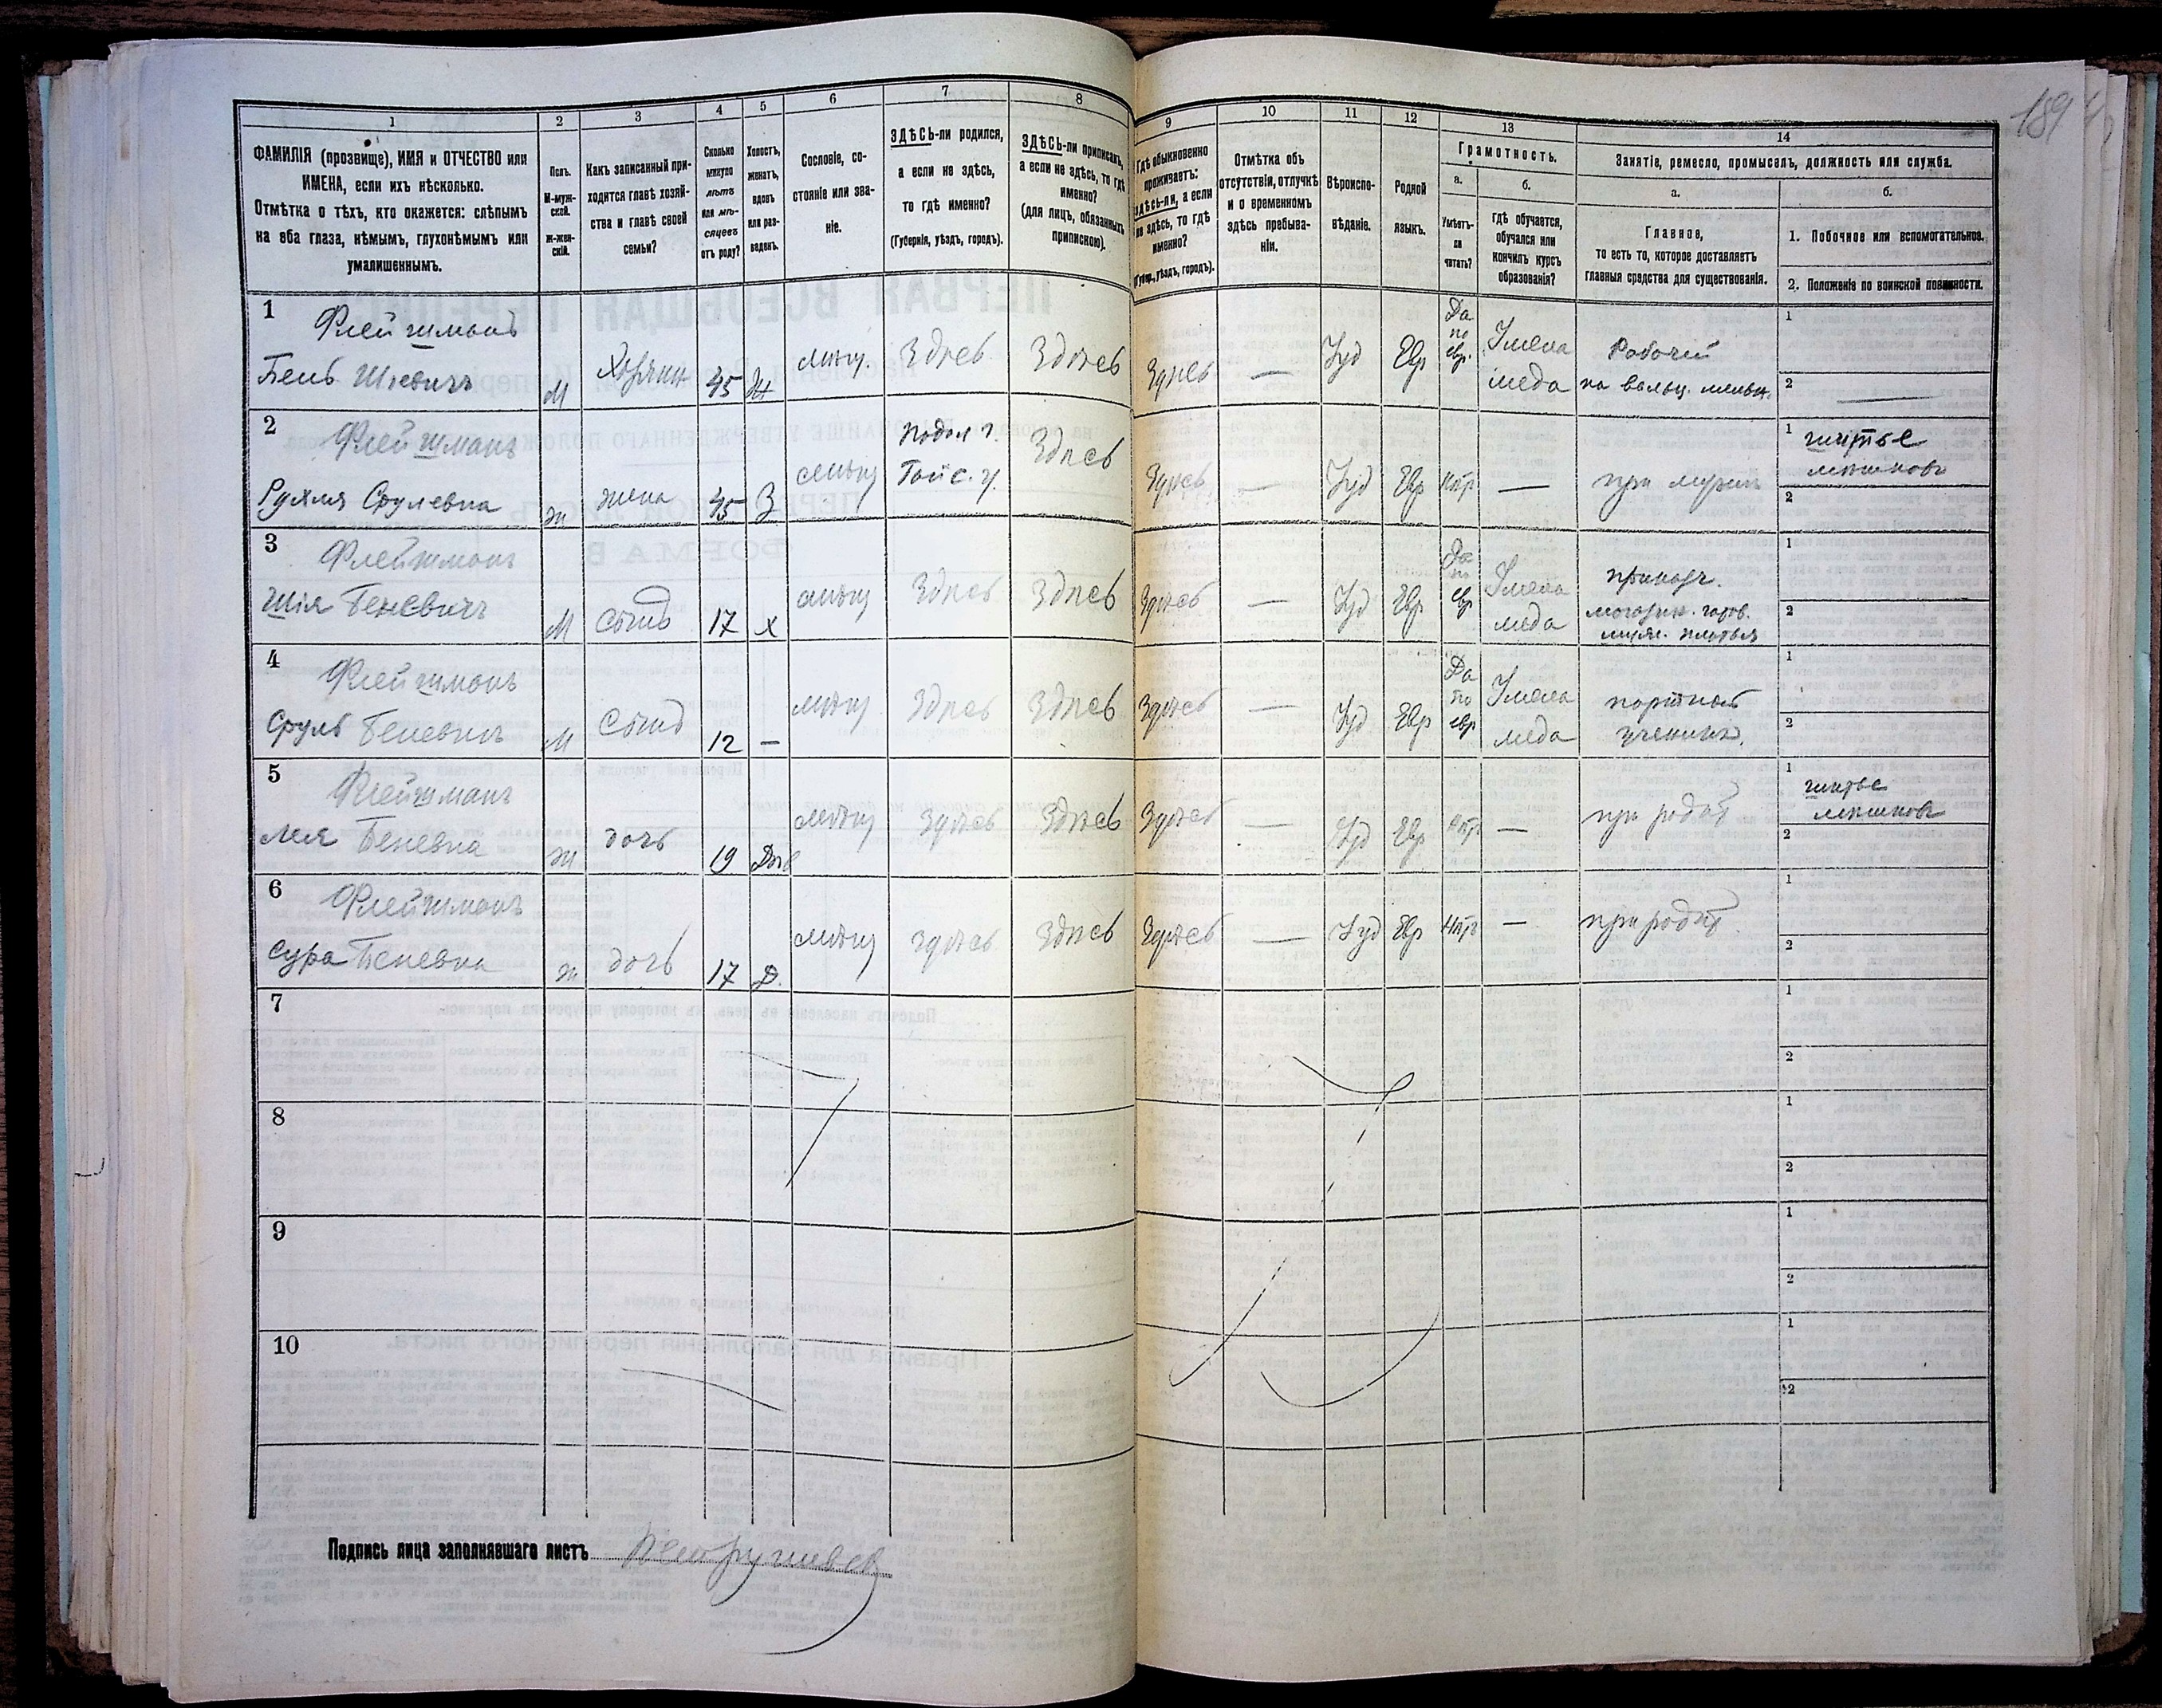 189
1
2
3
4
5
6
7
8
9
10
11
12
13
14
ФАМИЛІЯ (прозвище), ИМЯ и ОТЧЕСТВО или
ИМЕНА, если ихъ нѣсколько.
Отмѣтка о тѣхъ, кто окажется: слѣпымъ
на оба глаза, нѣмымъ, глухонѣмымъ или
умалишеннымъ.
Полъ.
М-муж-
ской.
Ж-жен-
скій.
Какъ записанный при-
ходится главѣ хозяй-
ства и главѣ своей
семьи?
Сколько
минуло
лѣтъ
или мѣ-
сяцевъ
отъ роду?
Холостъ,
женатъ,
вдовъ
или раз-
веденъ.
Сословіе, со-
стояніе или зва-
ніе.
ЗДѢСЬ-ли родился,
а если не здѣсь,
то гдѣ именно?
(Губернія, уѣздъ, городъ).
ЗДѢСЬ-ли приписанъ,
а если не здѣсь, то гдѣ
именно?
(для лицъ, обязанныхъ
припискою).
Гдѣ обыкновенно
проживаетъ:
здѣсь-ли, а если
не здѣсь, то гдѣ
именно?
(Губер., уѣздъ, городъ).
Отмѣтка объ
отсутствіи, отлучкѣ
и о временномъ
здѣсь пребыва-
ніи.
Вѣроиспо-
вѣданіе.
Родной
языкъ.
Грамотность.
а.
Умѣетъ-
ли
читать?
б.
гдѣ обучается,
обучался или
кончилъ курсъ
образованія?
Занятіе, ремесло, промыселъ, должность или служба.
а.
Главное,
то есть то, которое доставляетъ
главныя средства для существованія.
б.
1. Побочное или вспомогательное.
2. Положеніе по воинской повинности.
1
Флейшманъ
Бень Шіевичъ
М
Хозяинъ
45
Ж
мѣщ.
Здѣсь
Здѣсь
Здѣсь
—
Іуд
Евр
Да
по
евр.
У мела
меда
Рабочій
на вальц. мельн.
1
2
2
Флейшманъ
Рухля Срулевна
ж
жена
45
З
мѣщ
Подол г.
Гайс. у.
Здѣсь
Здѣсь
—
Іуд
Евр
Нтъ
—
при мужѣ
1 шитье
мѣшковъ
2
3
Флейшманъ
Шія Беневичъ
М
сынъ
17
х
мѣщ
Здѣсь
Здѣсь
Здѣсь
—
Іуд
Евр
Да
по
евр
У мела
меда
приказч.
магазин. готов.
платья
1
2
4
Флейшманъ
Сруль Беневичъ
М
сынъ
12
—
мѣщ
Здѣсь
Здѣсь
Здѣсь
—
Іуд
Евр
Да
по
евр
У мела
меда
портной
ученикъ.
1
2
5
Флейшманъ
Лея Беневна
ж
дочь
19
Дѣв
мѣщ
Здѣсь
Здѣсь
Здѣсь
—
Іуд
Евр
Нтъ
—
при родит
1 шитье
мѣшковъ
2
6
Флейшманъ
Сура Беневна
ж
дочь
17
Д.
мѣщ
Здѣсь
Здѣсь
Здѣсь
—
Іуд
Евр
Нтъ
—
при родит.
1
2
7
1
2
8
1
2
9
1
2
10
1
2
Подпись лица заполнявшаго листъ